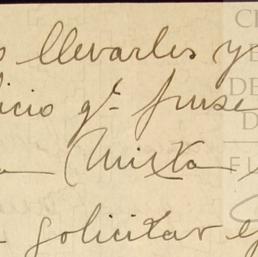 llevarles y
icio qe. fuese
Mixta
solicitar e